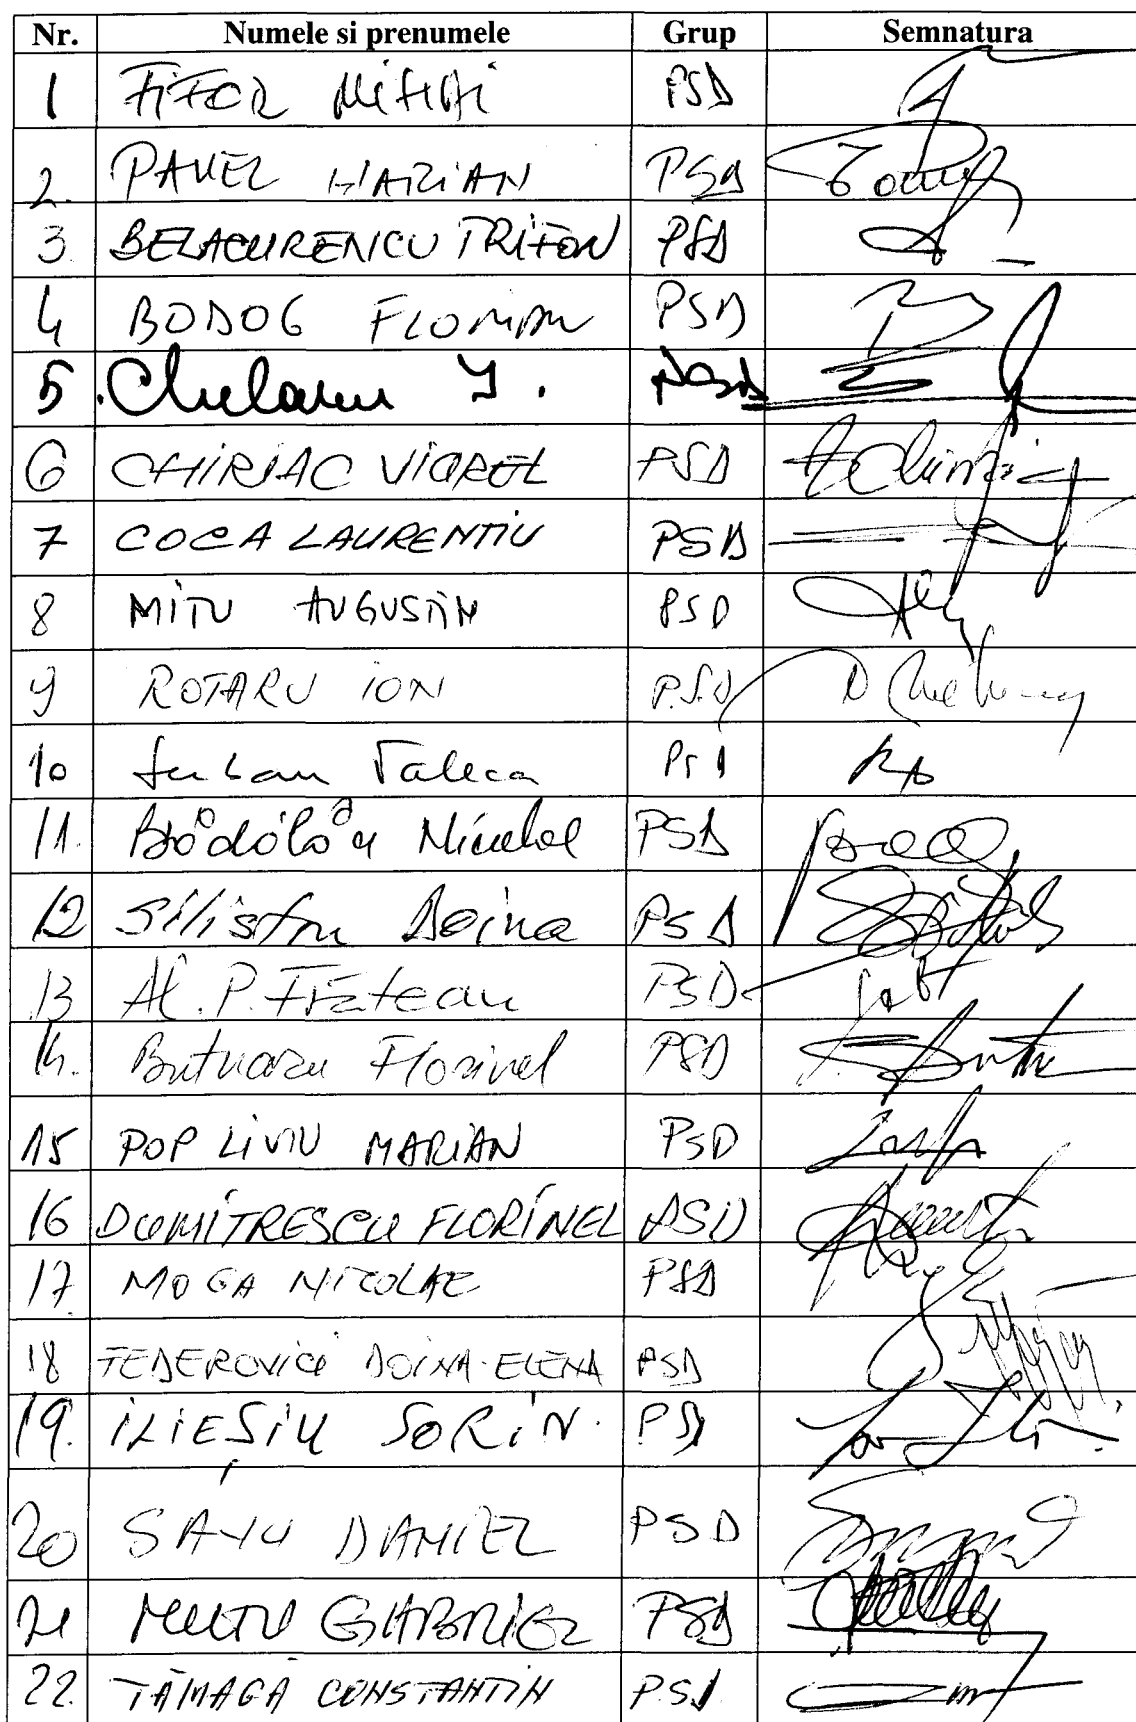 Nr. Numele si prenumele Grup Semnatura
1 FIFOR MIHAI PSD
2. PAVEL MARIAN PSD
3. BELACURENCU TRIFON PSD
4 BODOG FLORIAN PSD
5. Chelaru I. PSD
6 CHIRIAC VIOREL PSD
7 COCA LAURENTIU PSD
8 MITU AUGUSTIN PSD
9 ROTARU ION P.S.D
10 Valeca PSD
11. Bădălău Niculae PSD
12 Silistru Doina PSD
13 Al. P. Frăteanu PSD
14. Butnaru Florinel PSD
15 POP LIVIU MARIAN PSD
16 DUMITRESCU FLORINEL PSD
17. MOGA NICOLAE PSD
18 FEDEROVICI DOINA-ELENA PSD
19. ILIEȘIU SORIN. PSD
20 SAVU DANIEL PSD
21 MUTU GABRIEL PSD
22. TĂMAGĂ CONSTANTIN P.S.D